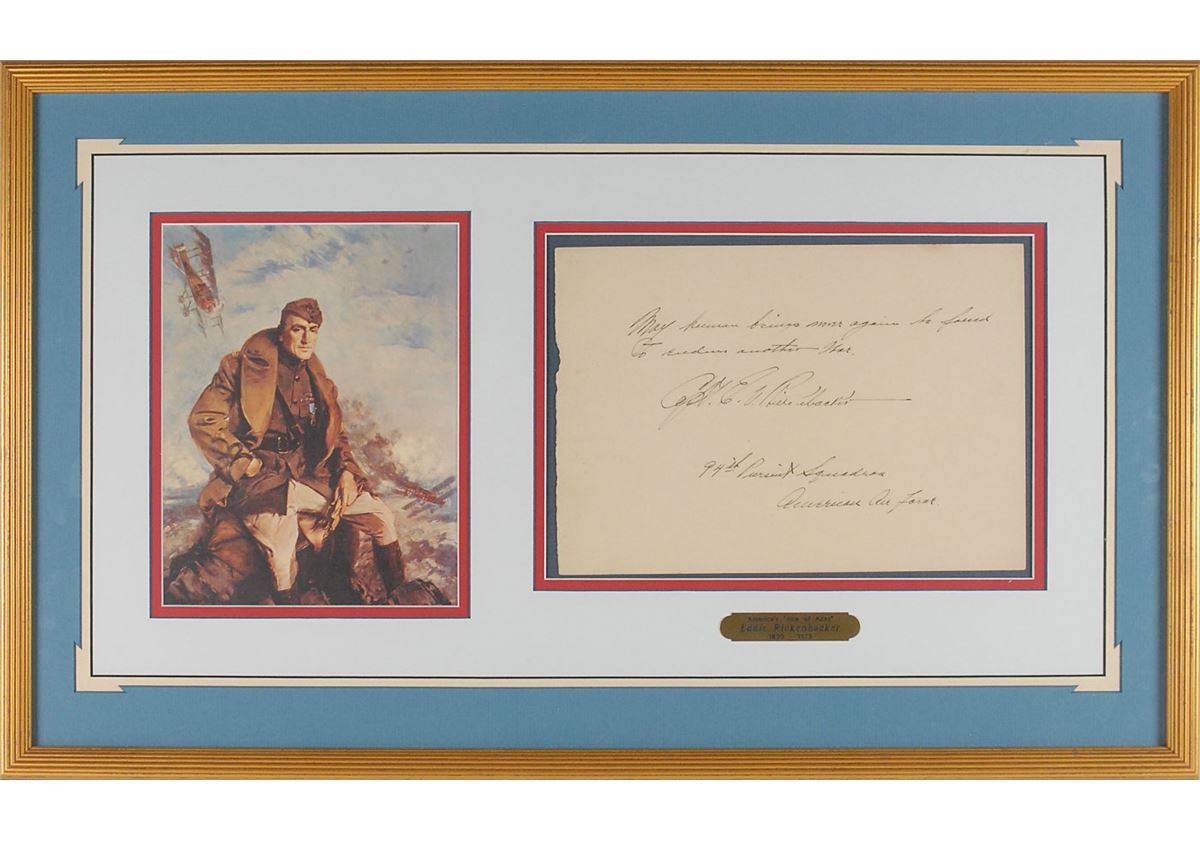 May human beings never again be forced
To endure another War.
Capt. E. V. Rickenbacker
94th Pursuit Squadron
American Air Force.
America's "Ace of Aces"
Eddie Rickenbacker
1890 - 1973